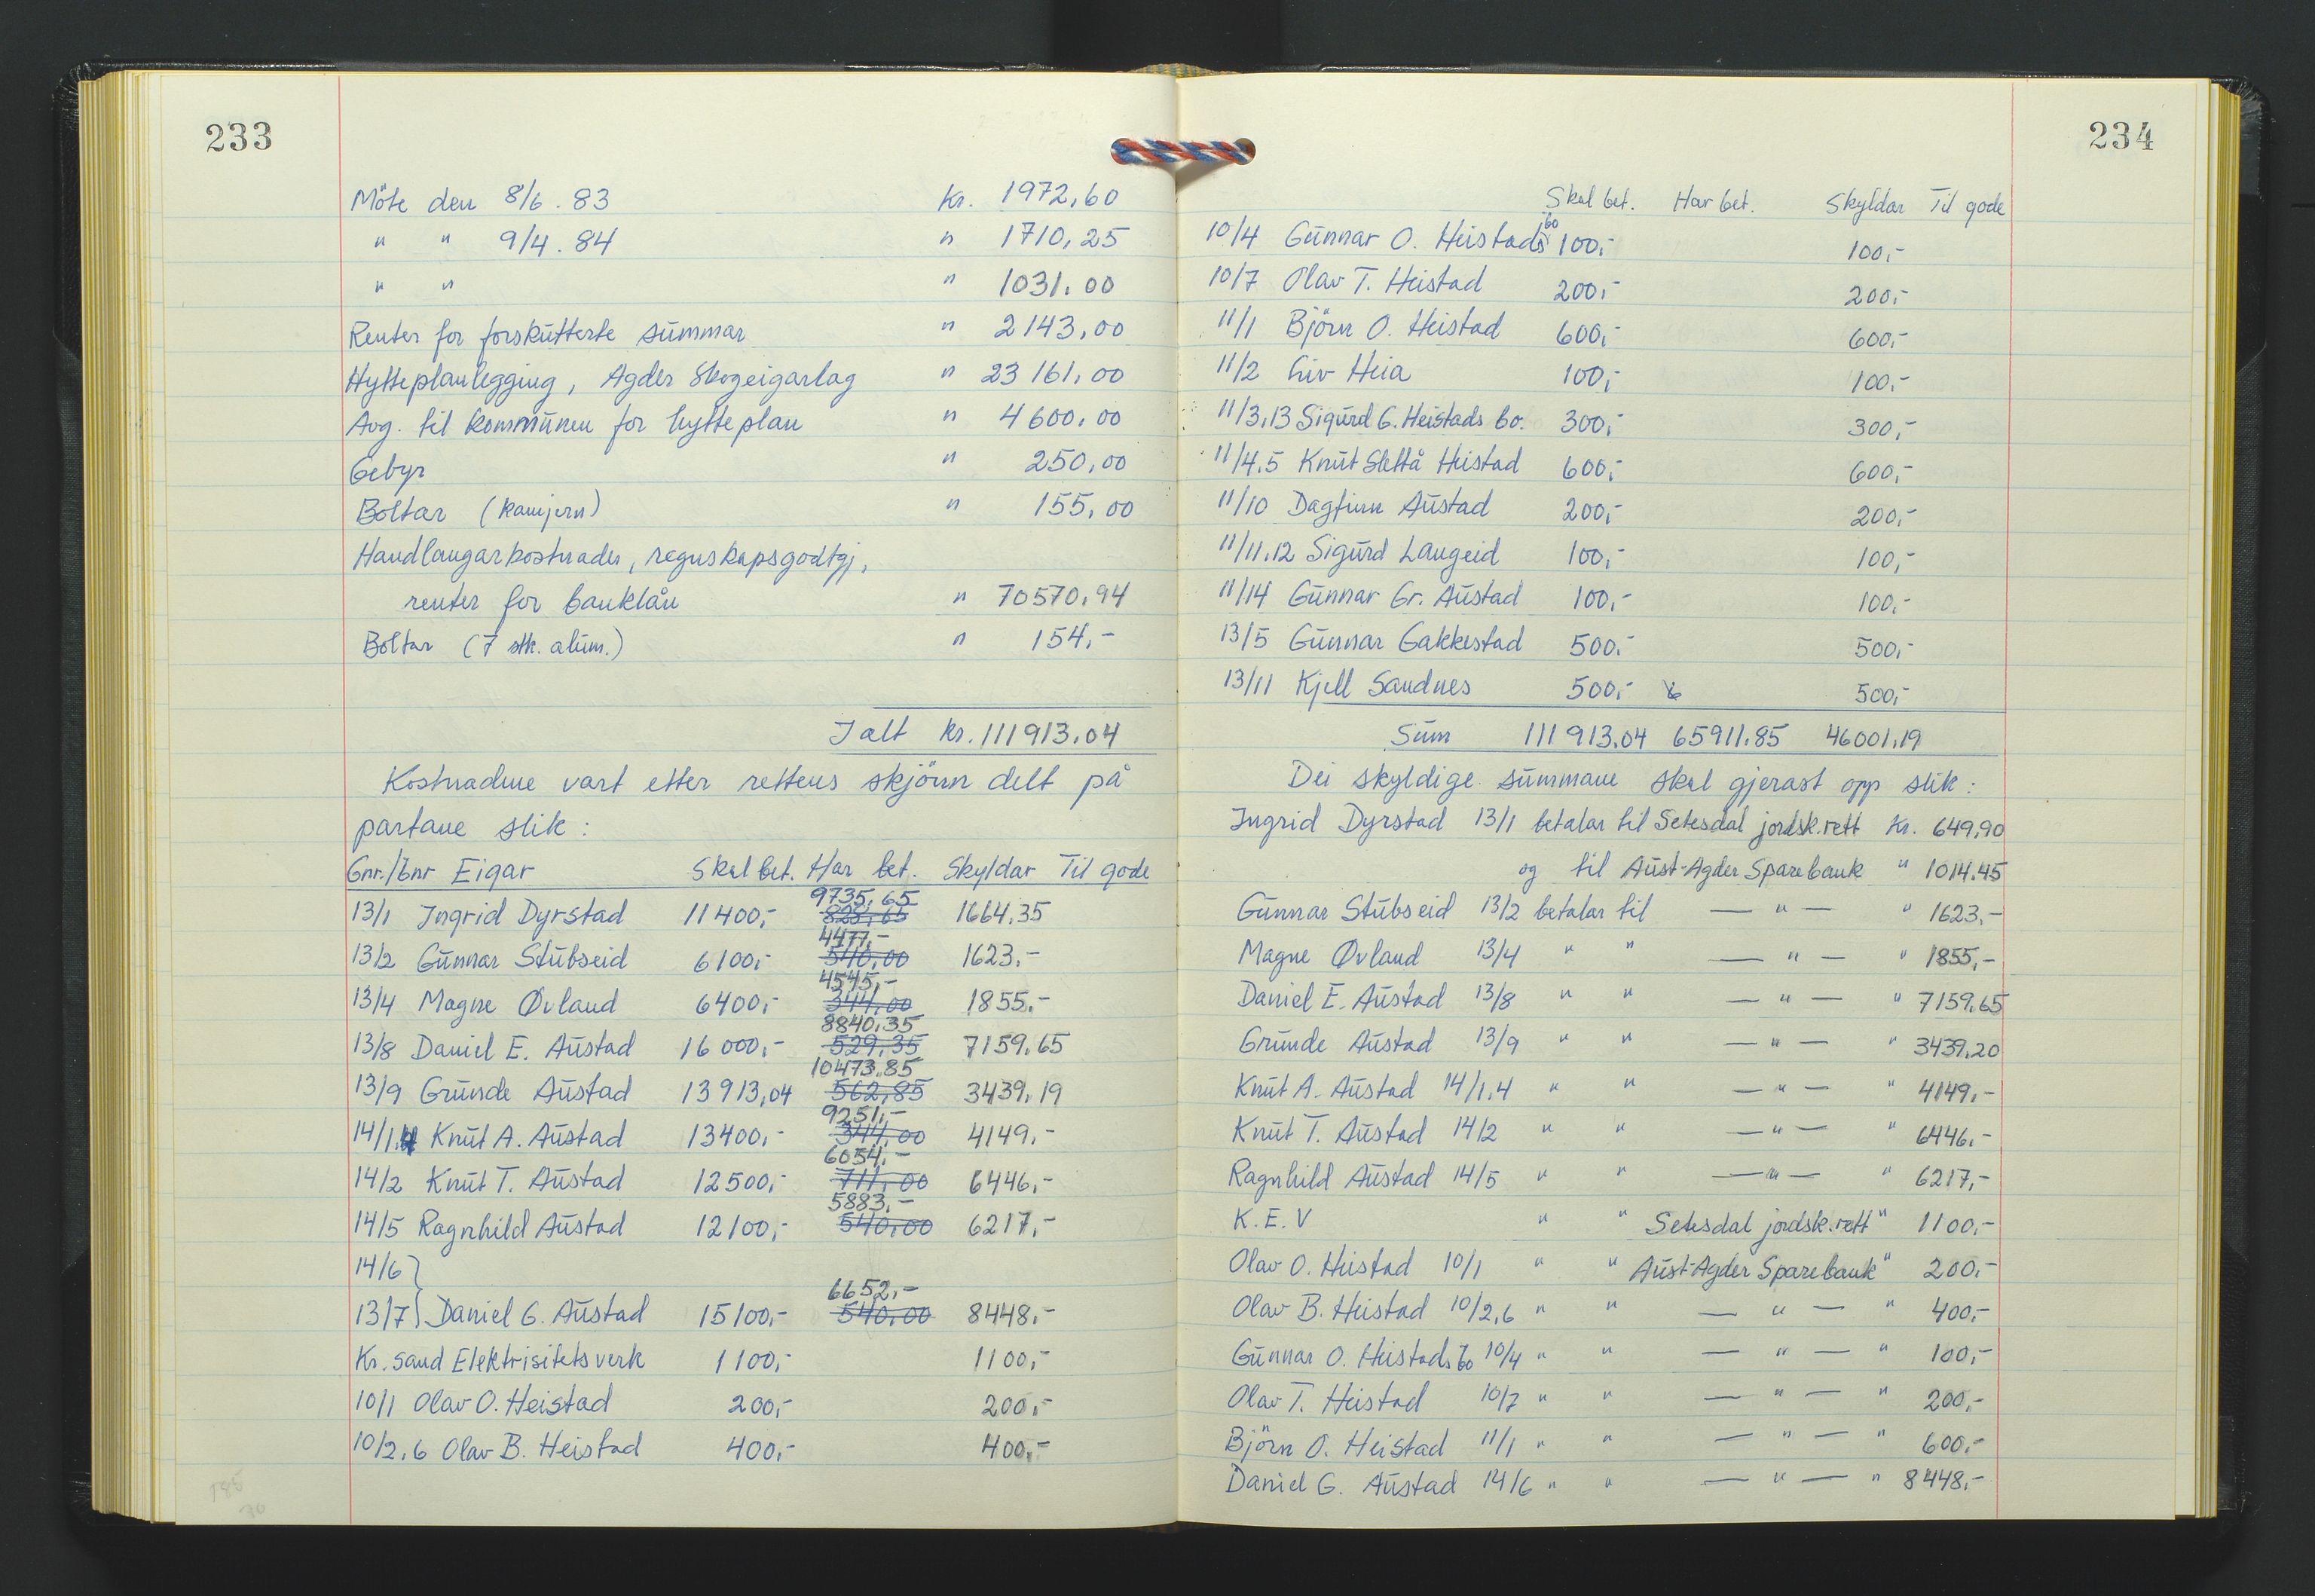 233
Möte den 8/6. 83 kr. 1972,60
" " 9/4. 84 " 1710,25
" " " 1031,00
Renter for forskutterte summar " 2143,00
Hytteplanlegging, Agder Skogeigarlag " 23 161,00
Avg. til kommunen for hytteplan " 4600,00
Gebyr " 250,00
Boltar (kamjern) " 155,00
Handlangarkostnader, regnskapsgodtgj,
renter for banklån " 70570,94
Boltar (7 stk. alum.) " 154,-
I alt kr. 111913,04
Kostnadene vart etter rettens skjönn delt på
partane slik:
Gnr./bnr Eigar Skal bet. Har bet. Skyldar Til gode
13/1 Ingrid Dyrstad 11400,- 9735,65 828,65 1664,35
13/2 Gunnar Stubseid 6100,- 4477,- 540,00 1623,-
13/4 Magne Øvland 6400,- 4545,- 344,00 1855,-
13/8 Daniel E. Austad 16 000,- 8840,35 529,35 7159,65
13/9 Grunde Austad 13913,04 10473,85 562,85 3439,19
14/1,4 Knut A. Austad 13400,- 9251,- 344,00 4149,-
14/2 Knut T. Austad 12500,- 6054,- 711,00 6446,-
14/5 Ragnhild Austad 12100,- 5883,- 540,00 6217,-
14/6}
13/7} Daniel G. Austad 15100,- 6652,- 540,00 8448,-
Kr.sand Elektrisitetsverk 1100,- 1100,-
10/1 Olav O. Heistad 200,- 200,-
10/2,6 Olav B. Heistad 400,- 400,-
185
70
234
Skal bet. Har bet. Skyldar Til gode
10/4 Gunnar O. Heistads bo 100,- 100,-
10/7 Olav T. Heistad 200,- 200,-
11/1 Björn O. Heistad 600,- 600,-
11/2 Liv Heia 100,- 100,-
11/3,13 Sigurd G. Heistads bo. 300,- 300,-
11/4.5 Knut Slettå Heistad 600,- 600,-
11/10 Dagfinn Austad 200,- 200,-
11/11.12 Sigurd Langeid 100,- 100,-
11/14 Gunnar Gr. Austad 100,- 100,-
13/5 Gunnar Gakkestad 500,- 500,-
13/11 Kjell Sandnes 500,- 500,-
Sum 111 913,04 65911,85 46001,19
Dei skyldige summane skal gjerast opp slik:
Ingrid Dyrstad 13/1 betalar til Setesdal jordsk.rett kr. 649,90
og til Aust-Agder Sparebank " 1014,45
Gunnar Stubseid 13/2 betalar til — " — " 1623,-
Magne Øvland 13/4 " " — " — " 1855,-
Daniel E. Austad 13/8 " " — " — " 7159,65
Grunde Austad 13/9 " " — " — " 3439,20
Knut A. Austad 14/1,4 " " — " — " 4149,-
Knut T. Austad 14/2 " " — " — " 6446,-
Ragnhild Austad 14/5 " " — " — " 6217,-
K.E.V " " Setesdal jordsk.rett " 1100,-
Olav O. Heistad 10/1 " " Aust-Agder Sparebank " 200,-
Olav B. Heistad 10/2,6 " " — " — " 400,-
Gunnar O. Heistads bo 10/4 " " — " — " 100,-
Olav T. Heistad 10/7 " " — " — " 200,-
Björn O. Heistad 11/1 " " — " — " 600,-
Daniel G. Austad 14/6 " " — " — " 8448,-